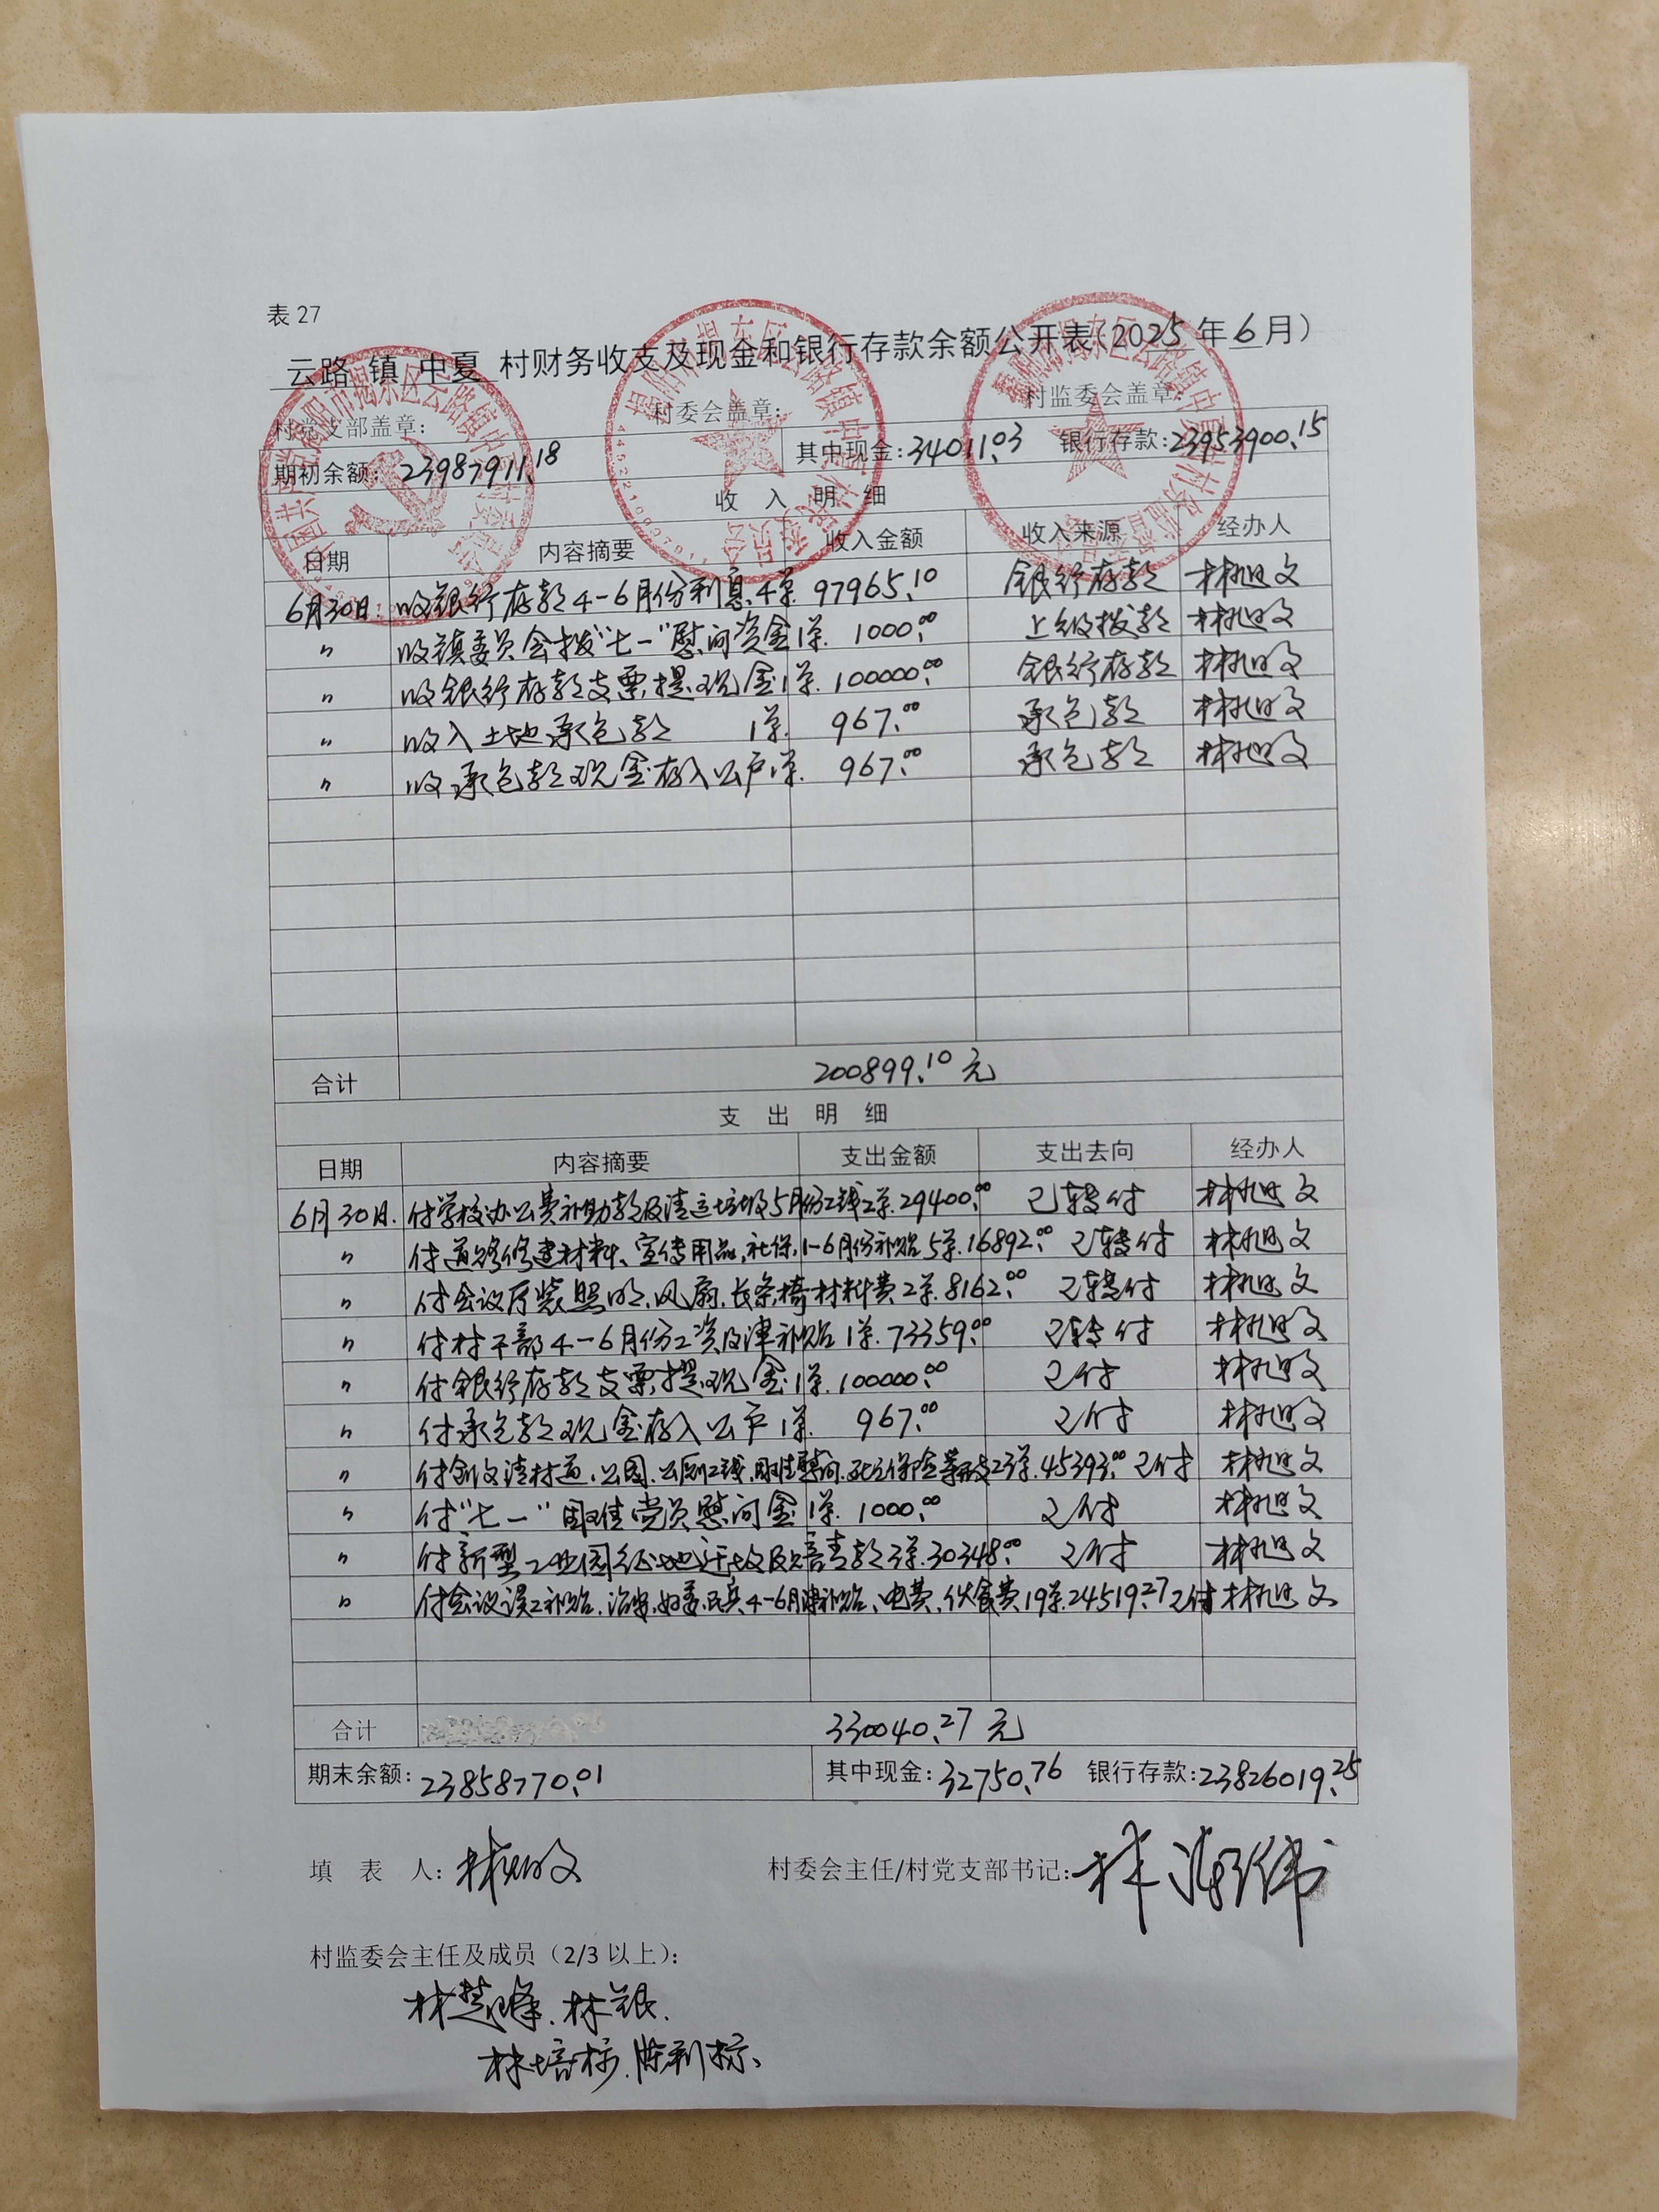 表 27
云路 镇 中夏 村财务收支及现金和银行存款余额公开表(2025 年 6 月)
村党支部盖章: 村委会盖章: 村监委会盖章:
期初余额: 23987911.18 其中现金: 34011.03 银行存款: 23953900.15
收 入 明 细
日期 内容摘要 收入金额 收入来源 经办人
6月30日. 收银行存款4-6月份利息4单. 97965.10 银行存款
〃 收镇委员会拨“七一”慰问资金1单. 1000.00 上级拨款
〃 收银行存款支票提现金1单. 100000.00 银行存款
〃 收入土地承包款 1单. 967.00 承包款
〃 收承包款现金存入公户1单. 967.00 承包款
合计 200899.10 元
支 出 明 细
日期 内容摘要 支出金额 支出去向 经办人
6月30日. 付学校办公费补助款及清运垃圾5月份工钱2单. 29400.00 已转付
〃 付道路修建材料、宣传用品,社保,1-6月份补贴5单. 16892.00 已转付
〃 付会议厅装照明,风扇,长条椅材料费2单. 8162.00 已转付
〃 付村干部4-6月份工资及津补贴1单. 73359.00 已转付
〃 付银行存款支票提现金1单. 100000.00 已付
〃 付承包款现金存入公户1单. 967.00 已付
〃 付创文清村道,公园,公厕工钱,困难慰问,死亡保险等开支23单. 45393.00 已付
〃 付“七一”困难党员慰问金1单. 1000.00 已付
〃 付新型工业园征地迁坟及赔青款3单. 30348.00 已付
〃 付会议误工补贴,治安,妇委,民兵4-6月津补贴、电费、伙食费19单. 24519.27 已付
合计 330040.27 元
期末余额: 23858770.01 其中现金: 32750.76 银行存款: 23826019.25
填 表 人: 村委会主任/村党支部书记:
村监委会主任及成员(2/3 以上):
林楚峰. 林银.
林培标. 陈利标、